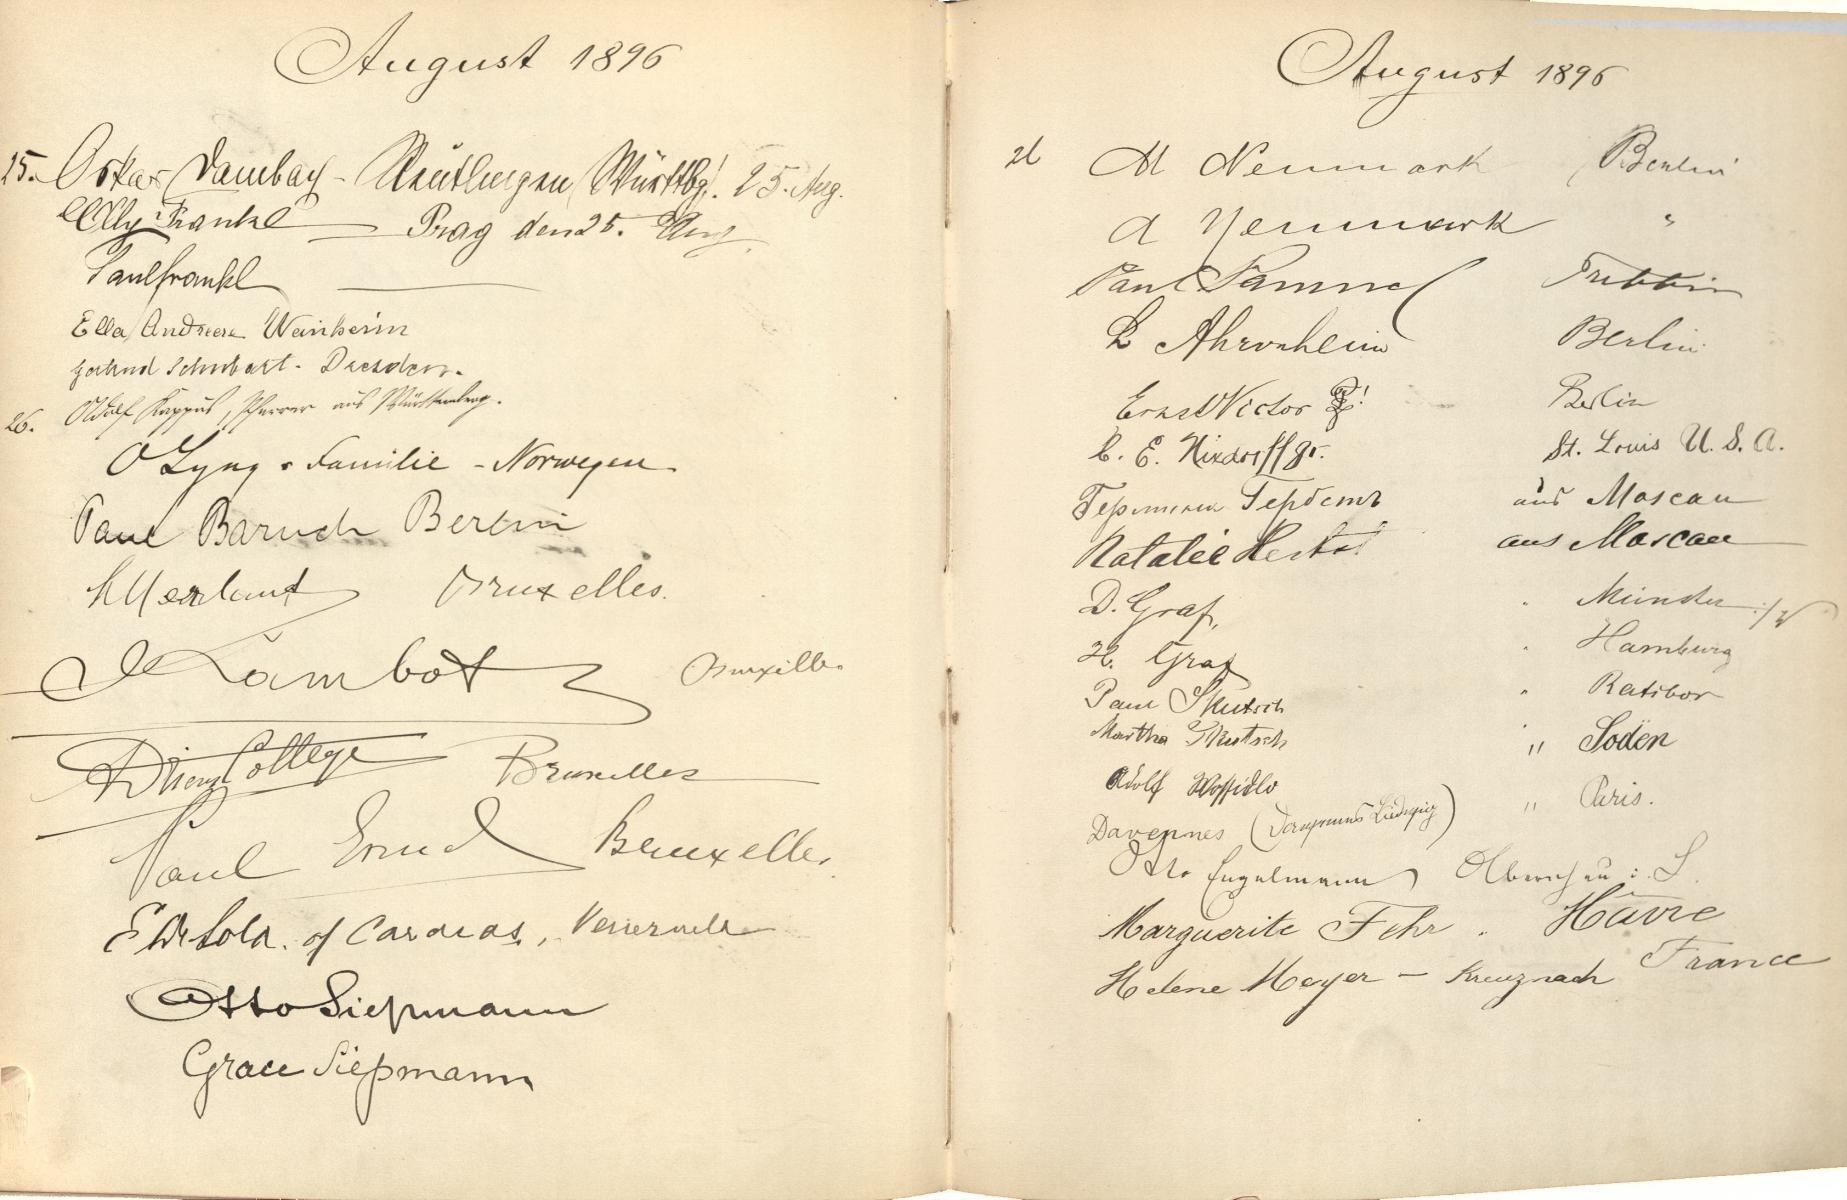 August 1896
25. Oskar Dambach - Reutlingen Württbg. 25. Aug.
Elly Frankl Prag den 25. Aug
Paul Frankl
Ella Andreae Weinheim
Gertrud Schubart - Dresden.
26. Adolf Kappus, Pfarrer aus Württemberg.
O Lyng & Familie - Norwegen
Paul Baruch Berlin
Bruxelles.
Rambot Bruxelles
Bruxelles
Paul Bruxelles.
E De Sola. of Caracas, Venezuela
Otto Siepmann
Grace Siepmann
August 1896
26 M Neumark Berlin
A Neumark "
Paul Samuel Trebbin
L Ahronheim Berlin
Ernst Victor Berlin
C. E. Nixdorff jr. St. Louis U.S.A.
Гербстъ aus Moscau
Natalie Herbst aus Moscau
D. Graf, " Münster i/W
H. Graf " Hamburg
Paul Skutsch " Ratibor
Martha Skutsch " Soden
Adolf Wossidlo " Paris.
Davennes
Otto Engelmann
Marguerite Fehr. Hâvre France
Helene Meyer - Kreuznach